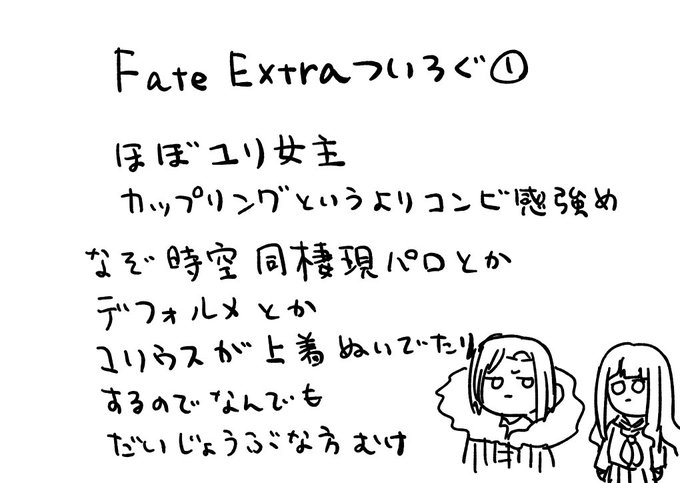 Fate Extraついろぐ①
ほぼユリ女主
カップリングというよりコンビ感強め
なぞ時空 同棲現パロとか
デフォルメとか
ユリウスが上着ぬいでたり
するのでなんでも
だいじょうぶな方むけ